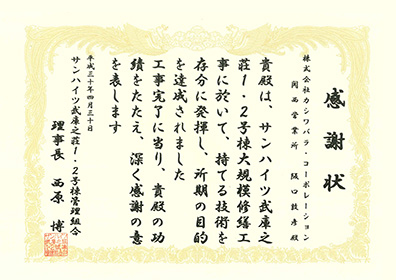 感謝状
株式会社カシワバラ・コーポレーション
関西営業所 阪口敦彦殿
貴殿は、サンハイツ武庫之
荘1・2号棟大規模修繕工
事に於いて、持てる技術を
存分に発揮し、所期の目的
を達成されました
工事完了に当り、貴殿の功
績をたたえ、深く感謝の意
を表します
平成三十年四月三十日
サンハイツ武庫之荘1・2号棟管理組合
理事長 西原 博